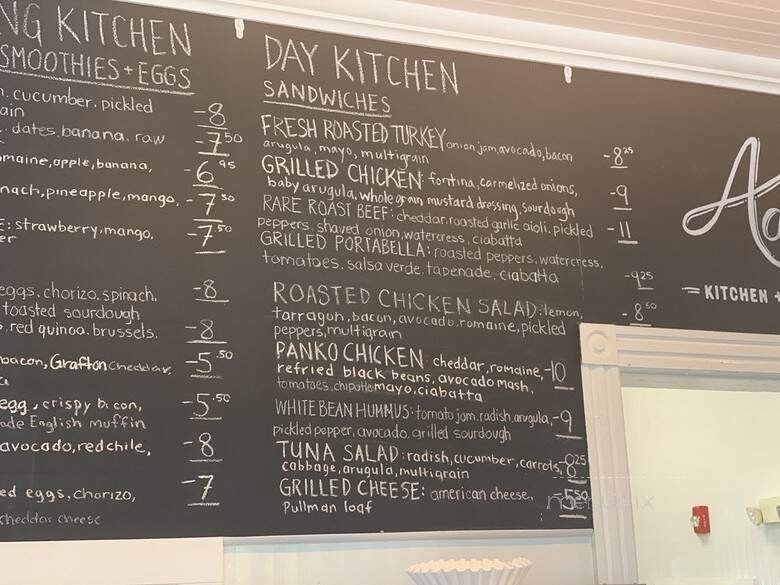 NG KITCHEN
SMOOTHIES + EGGS
cucumber. pickled
ain -8
dates, banana. raw -7 50
maine, apple, banana, -6 95
nach, pineapple, mango, -7 50
E: strawberry, mango, -7 50
er
eggs. chorizo. spinach. -8
toasted sourdough
red quinoa. brussels. -8
bacon, Grafton cheddar, -5 .50
egg, crispy bacon, -5 .50
ade English muffin
avocado, red chile, -8
ed eggs, chorizo, -7
cheddar cheese
DAY KITCHEN
SANDWICHES
FRESH ROASTED TURKEY onion jam, avocado, bacon -8 25
arugula, mayo, multigrain
GRILLED CHICKEN: fontina, carmelized onions, -9
baby arugula, whole grain mustard dressing, sourdough
RARE ROAST BEEF: cheddar, roasted garlic aioli, pickled -11
peppers, shaved onion, watercress, ciabatta
GRILLED PORTABELLA: roasted peppers, watercress,
tomatoes. salsa verde. tapenade, ciabatta -9 25
ROASTED CHICKEN SALAD: lemon, -8 50
tarragon, bacon, avocado, romaine, pickled
peppers, multigrain
PANKO CHICKEN cheddar, romaine, -10
refried black beans, avocado mash,
tomatoes, chipotle mayo, ciabatta
WHITE BEAN HUMMUS: tomato jam, radish, arugula, -9
pickled pepper, avocado, grilled sourdough
TUNA SALAD: radish, cucumber, carrots, 8 25
cabbage, arugula, multigrain
GRILLED CHEESE: american cheese, -5 50
Pullman loaf
KITCHEN +
menupix